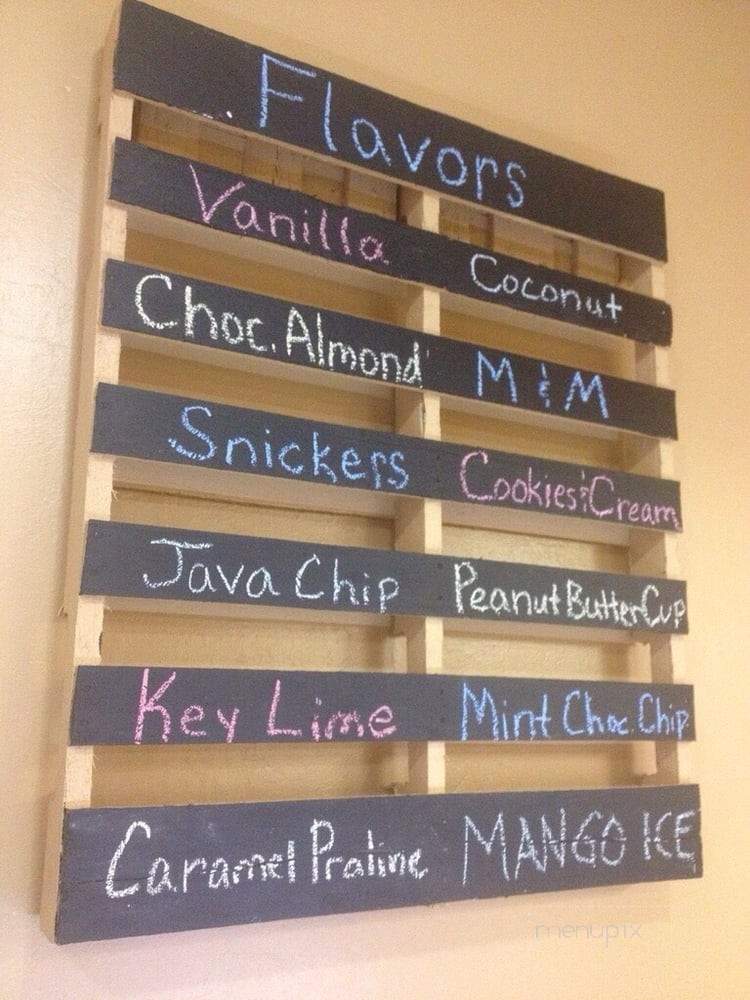 Flavors
Vanilla Coconut
Choc. Almond M & M
Snickers Cookies & Cream
Java Chip Peanut Butter Cup
Key Lime Mint Choc. Chip
Caramel Praline MANGO ICE
menupix